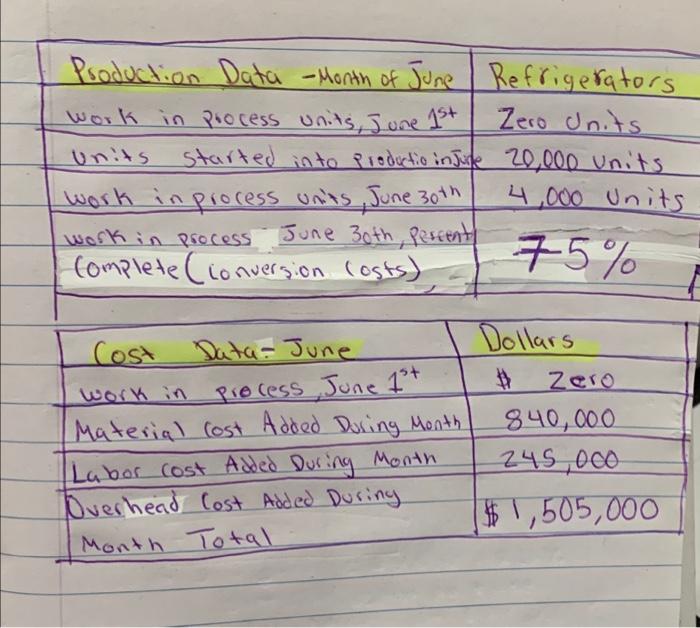 Production Data - Month of June Refrigerators
work in process units, June 1st Zero Units
Units started into Productio in June 20,000 units
work in process units, June 30th 4,000 Units
work in process June 30th, Percent
Complete (Conversion Costs) 75%
Cost Data - June Dollars
work in process, June 1st $ Zero
Material Cost Added During Month 840,000
Labor Cost Added During Month 245,000
Overhead Cost Added During
Month Total $1,505,000